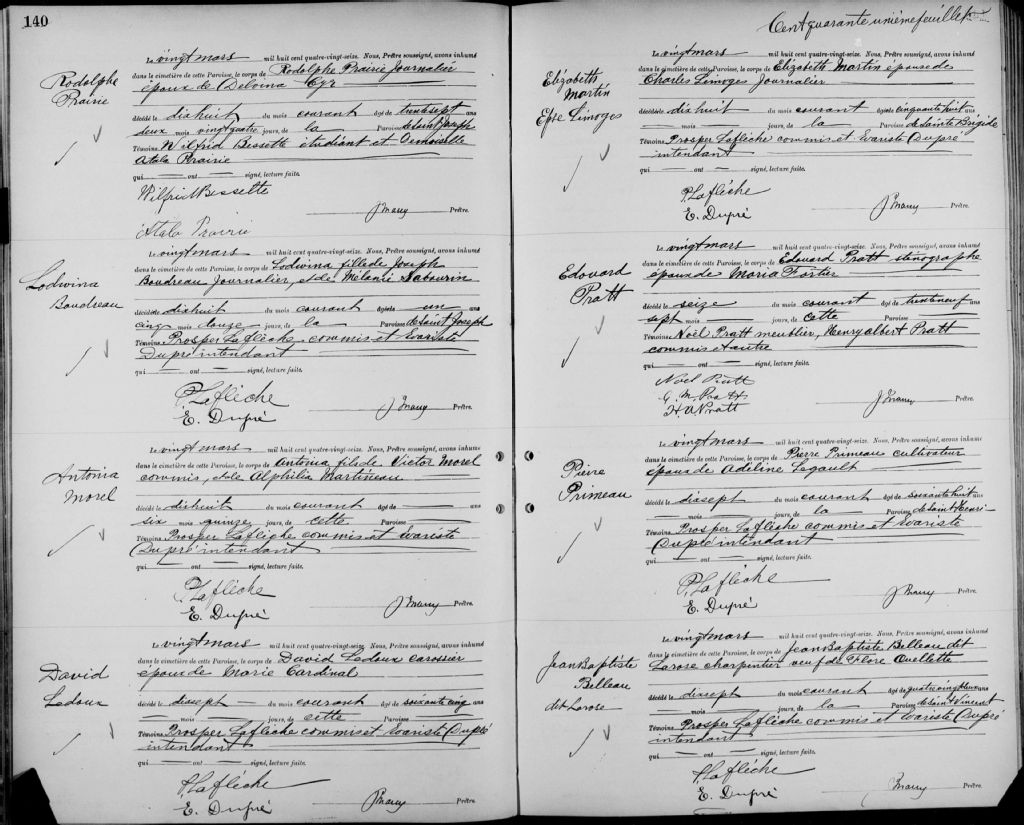 140
Rodolphe
Prairie
Le vingt mars mil huit cent quatre-vingt-seize. Nous, Prêtre soussigné, avons inhumé
dans le cimetière de cette Paroisse, le corps de Rodolphe Prairie Journalier
époux de Delvina Cyr
décédé le dixhuit du mois courant âgé de trentesept ans
deux mois vingtquatre jours, de la Paroisse de Saint Joseph
Témoins Wilfrid Bessette étudiant et Demoiselle
Atala Prairie
qui — ont — signé, lecture faite.
Wilfrid Bessette
Prêtre.
Atala Prairie
Lodivina
Boudreau
Le vingt mars mil huit cent quatre-vingt-seize. Nous, Prêtre soussigné, avons inhumé
dans le cimetière de cette Paroisse, le corps de Lodivina fille de Joseph
Boudreau Journalier, et de Mélanie Sabourin
décédée le dixhuit du mois courant âgée de un
cinq mois douze jours, de la Paroisse de Saint Joseph
Témoins Prosper Laflèche commis et Evariste
Dupré intendant
qui — ont — signé, lecture faite.
P. Laflèche
Prêtre.
E. Dupré
Antonia
Morel
Le vingt mars mil huit cent quatre-vingt-seize. Nous, Prêtre soussigné, avons inhumé
dans le cimetière de cette Paroisse, le corps de Antonia fille de Victor Morel
commis, et de Alphilia Martineau
décédé le dixhuit du mois courant âgé de — ans
six mois quinze jours, de cette Paroisse
Témoins Prosper Laflèche commis et Evariste
Dupré intendant
qui — ont — signé, lecture faite.
P. Laflèche
E. Dupré Prêtre.
David
Ledoux
Le vingt mars mil huit cent quatre-vingt-seize. Nous, Prêtre soussigné, avons inhumé
dans le cimetière de cette Paroisse, le corps de David Ledoux carossier
époux de Marie Cardinal
décédé le dixsept du mois courant âgé de soixante cinq ans
— mois — jours, de cette Paroisse
Témoins Prosper Laflèche commis et Evariste Dupré
intendant
qui — ont — signé, lecture faite.
P. Laflèche
E. Dupré Prêtre.
Cent quarante unième feuillet
Elizabeth
Martin
Epse Limoges
Le vingt mars mil huit cent quatre-vingt-seize. Nous, Prêtre soussigné, avons inhumé
dans le cimetière de cette Paroisse, le corps de Elizabeth Martin épouse de
Charles Limoges Journalier
décédée le dixhuit du mois courant âgée de cinquante huit ans
— mois — jours, de la Paroisse de Sainte Brigide
Témoins Prosper Laflèche commis et Evariste Dupré
intendant
qui — ont — signé, lecture faite.
P. Laflèche
E. Dupré Prêtre.
Edouard
Pratt
Le vingt mars mil huit cent quatre-vingt-seize. Nous, Prêtre soussigné, avons inhumé
dans le cimetière de cette Paroisse, le corps de Edouard Pratt sténographe
époux de Maria Fortier
décédé le seize du mois courant âgé de trenteneuf ans
sept mois — jours, de cette Paroisse
Témoins Noël Pratt meublier, Henry albert Pratt
commis et autre
qui — ont — signé, lecture faite.
Noël Pratt
G. M. Pratt
H. A. Pratt Prêtre.
Pierre
Primeau
Le vingt mars mil huit cent quatre-vingt-seize. Nous, Prêtre soussigné, avons inhumé
dans le cimetière de cette Paroisse, le corps de Pierre Primeau cultivateur
époux de Adeline Legault
décédé le dixsept du mois courant âgé de soixante huit ans
— mois — jours, de la Paroisse de Saint Henri
Témoins Prosper Laflèche commis et Evariste
Dupré intendant
qui — ont — signé, lecture faite.
P. Laflèche
E. Dupré Prêtre.
Jean Baptiste
Belleau
dit Larose
Le vingt mars mil huit cent quatre-vingt-seize. Nous, Prêtre soussigné, avons inhumé
dans le cimetière de cette Paroisse, le corps de Jean Baptiste Belleau dit
Larose charpentier veuf de Flore Ouellette
décédé le dixsept du mois courant âgé de quatre cinq deux ans
— mois — jours, de la Paroisse de Saint Vincent
Témoins Prosper Laflèche commis et Evariste Dupré
intendant
qui — ont — signé, lecture faite.
P. Laflèche
E. Dupré Prêtre.